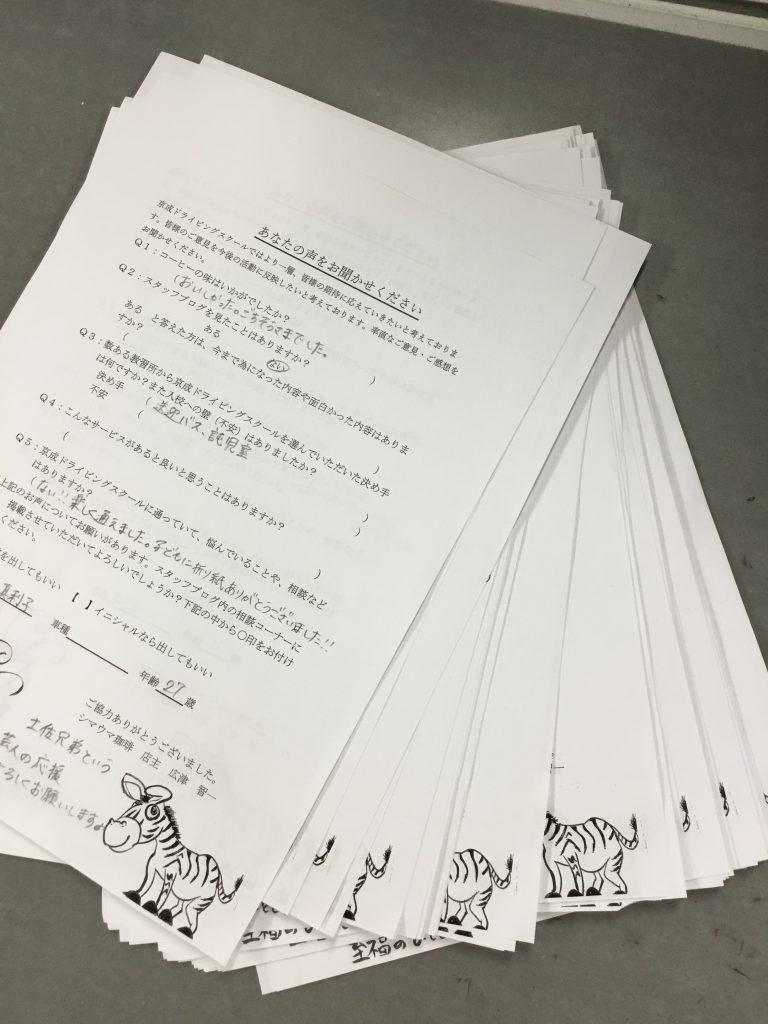 あなたの声をお聞かせください
京成ドライビングスクールではより一層、皆様の期待に応えていきたいと考えておりま
す。皆様のご意見を今後の活動に反映したいと考えております。率直なご意見・ご感想を
お聞かせください。
Q1：コーヒーの味はいかがでしたか？
(おいしかった。ごちそうさまでした。 )
Q2：スタッフブログを見たことはありますか？
ある ない
ある と答えた方は、今まで為になった内容や面白かった内容はありま
すか？
( )
Q3：数ある教習所から京成ドライビングスクールを選んでいただいた決め手
は何ですか？また入校への壁（不安）はありましたか？
決め手 ( 送迎バス、託児室 )
不安 ( )
Q4：こんなサービスがあると良いと思うことはありますか？
( )
Q5：京成ドライビングスクールに通っていて、悩んでいることや、相談など
はありますか？
(ない!! 楽しく通えました。子どもに折り紙ありがとうございました!!
上記のお声についてお願いがあります。スタッフブログ内の相談コーナーに
掲載させていただいてよろしいでしょうか？下記の中から〇印をお付け
ください。
を出してもいい 【 】イニシャルなら出してもいい
車種 年齢 27 歳
ご協力ありがとうございました。
シマウマ珈琲 店主 広津 智一
土佐兄弟という
芸人の応援
よろしくお願いします
至福の